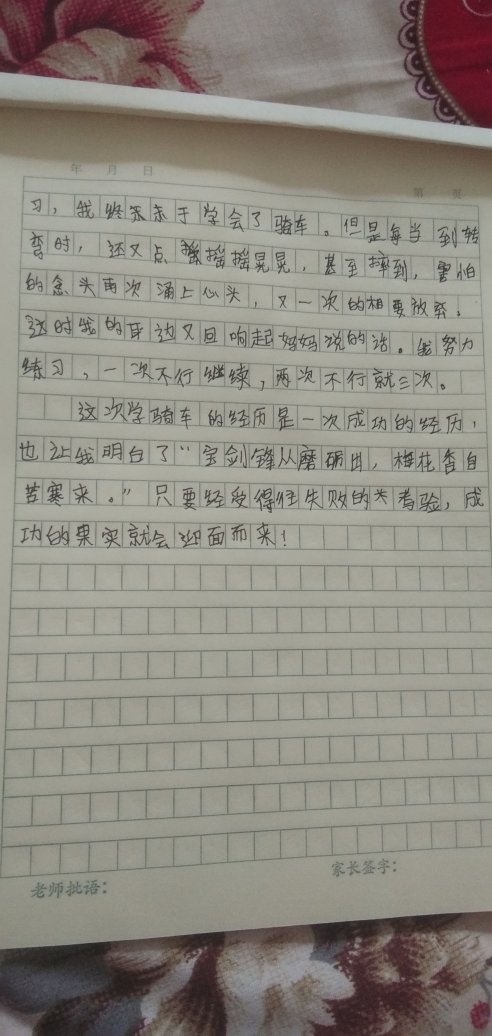 年 月 日
第 页
习，我终于学会了骑车。但是每当到转
弯时，还又点摇摇晃晃，甚至摔到，害怕
的念头再次涌上心头，又一次的想要放弃。
这时我的耳边又回响起妈妈说的话。我努力
练习，一次不行继续，两次不行就三次。
这次学骑车的经历是一次成功的经历，
也让我明白了“宝剑锋从磨砺出，梅花香自
苦寒来。”只要经受得住失败的考验，成
功的果实就会迎面而来！
老师批语：
家长签字：